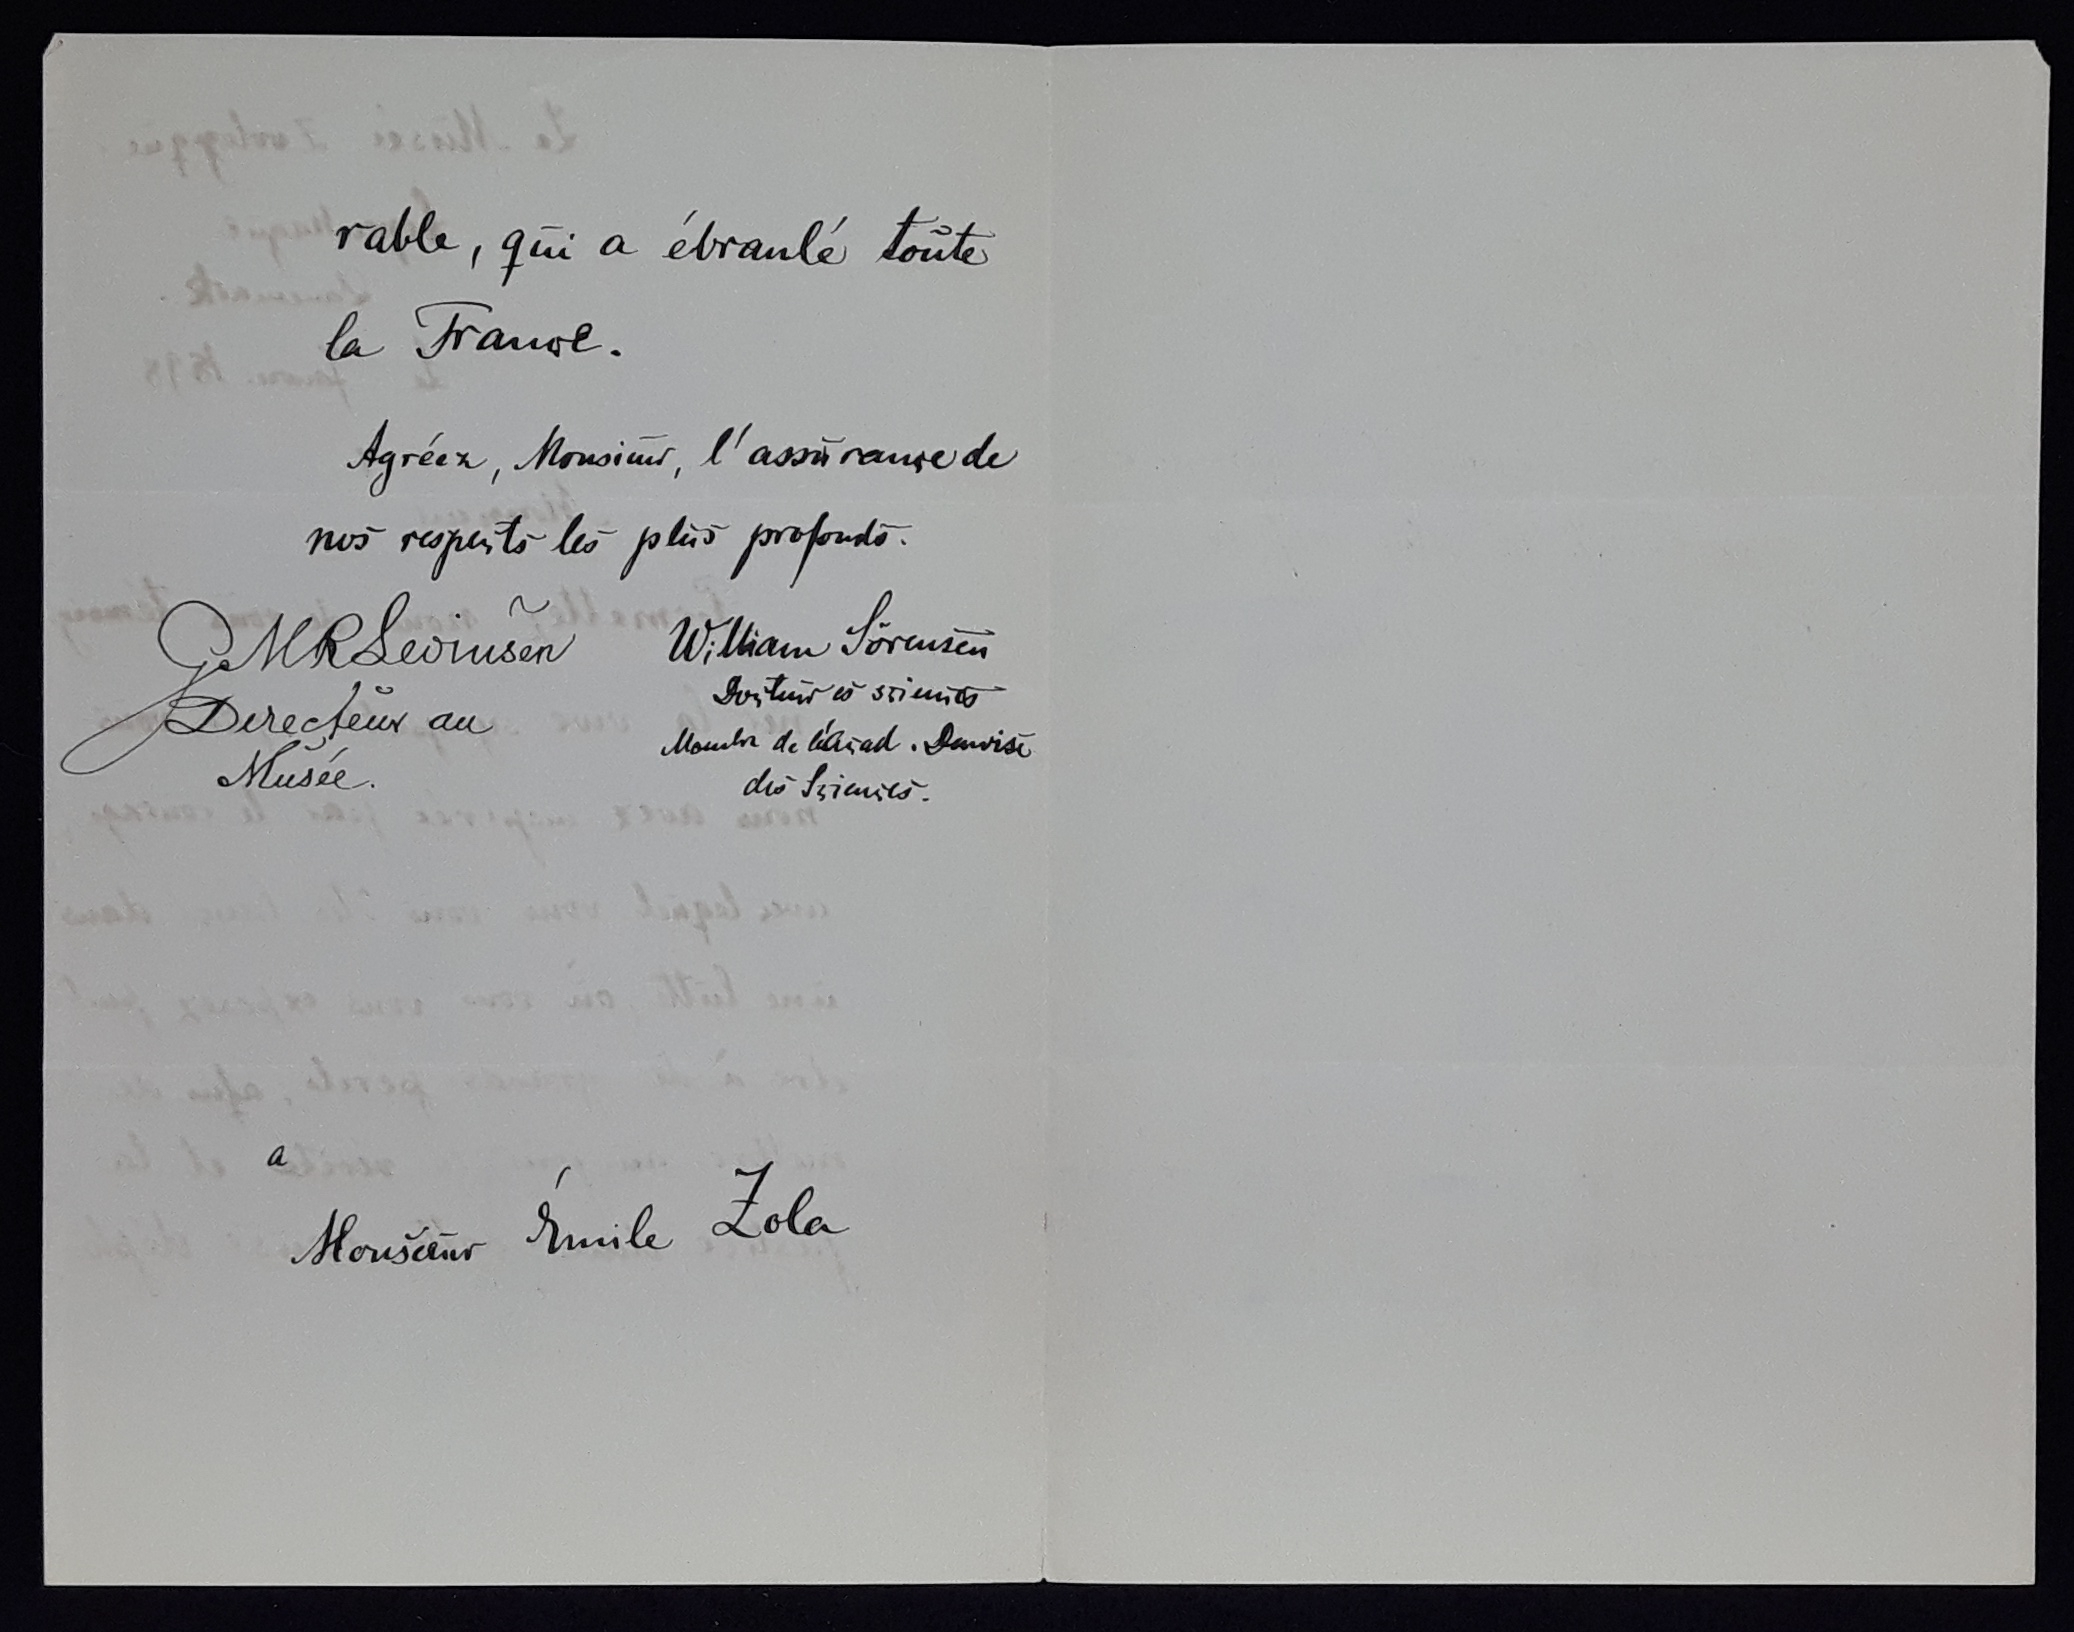 rable, qui a ébranlé toute
la France.
Agréez, Monsieur, l'assurance de
nos respects les plus profonds.
GMRLevinsen
Directeur au
Musée.
William Sörensen
Docteur ès sciences
Membre de l'Acad. Danoise
des Sciences.
a
Monsieur Émile Zola